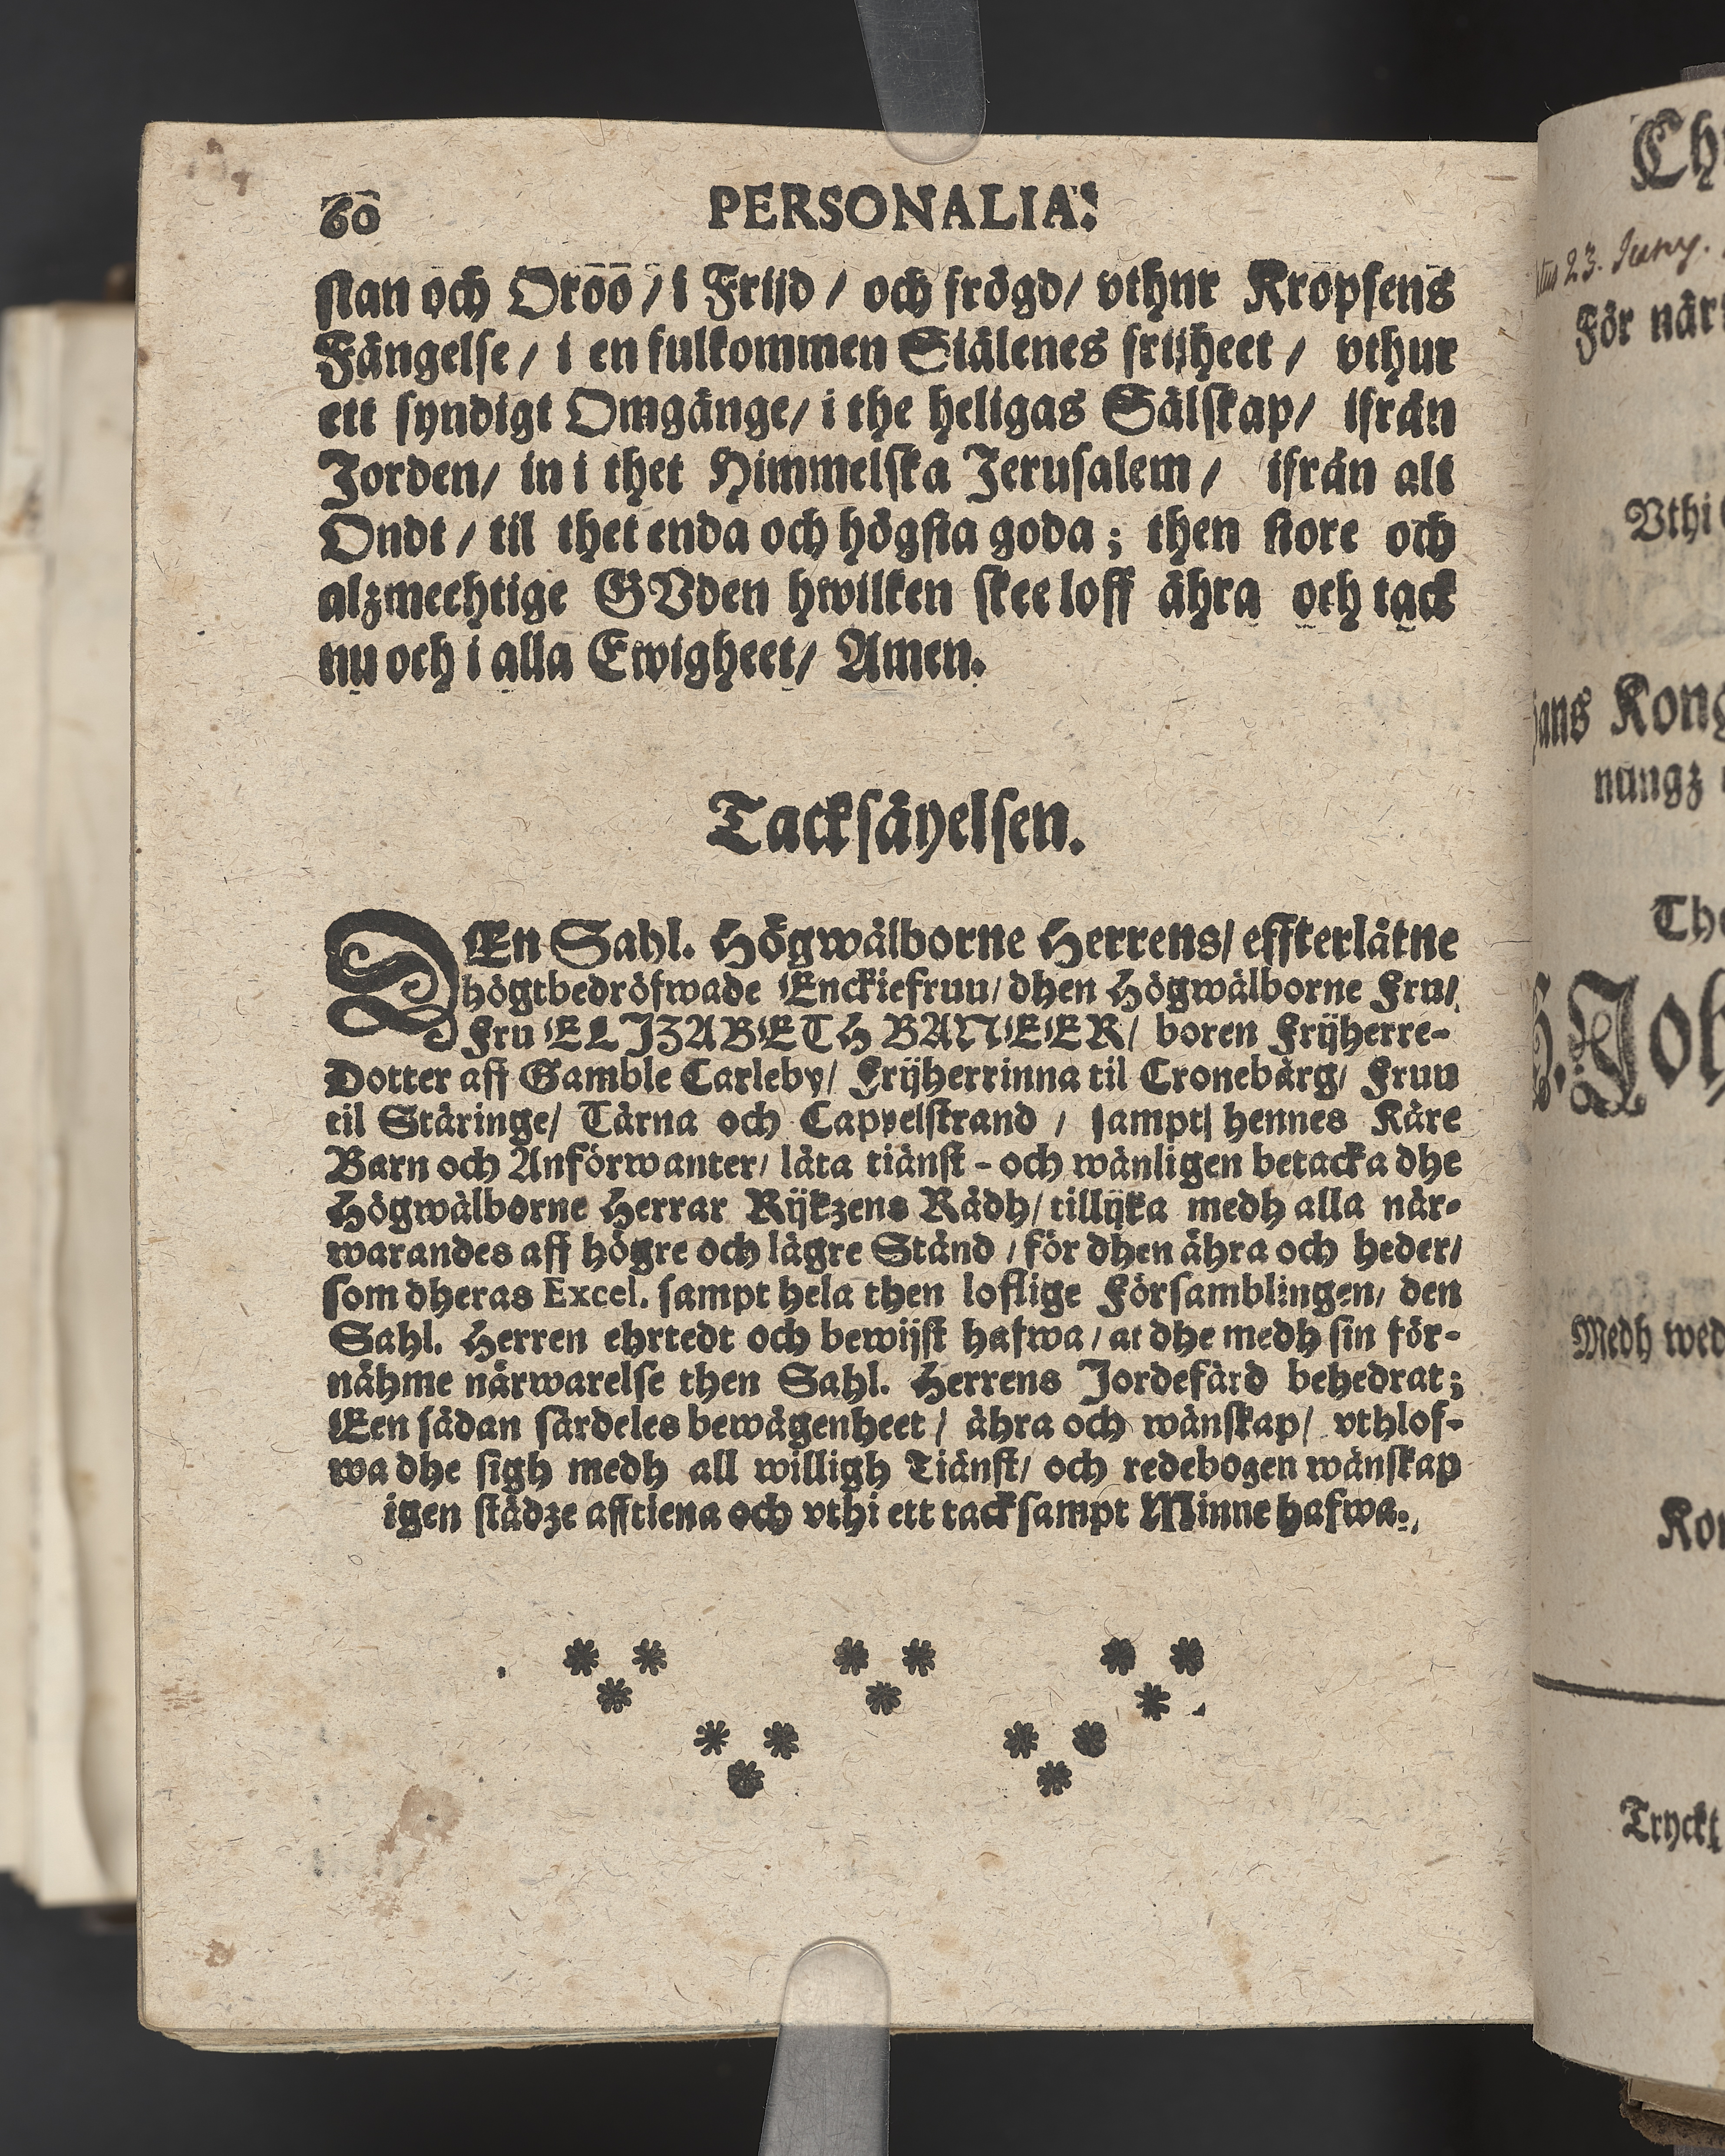 60 PERSONALIA.
ſtan och Oroo / i Friid / och frögd / vthur Kropſens
Fängelſe / i en fulkommen Siälenes friiheet / vthur
ett ſyndigt Omgänge / i the heligas Sälſkap / ifrån
Jorden / in i thet Himmelſka Jeruſalem / ifrån alt
Ondt / til thet enda och högſta goda ; then ſtore och
alzmechtige GVden hwilken ſkee loff ähra och tack
nu och i alla Ewigheet / Amen.
Tackſäyelſen.
DEn Sahl. Högwälborne Herrens / effterlåtne
högtbedröfwade Enckiefruu / dhen Högwälborne Fru /
Fru ELIZABETH BANEER / boren Frijherre-
Dotter aff Gamble Carleby / Frijherrinna til Cronebärg / Fruu
til Stäringe / Tärna och Cappelſtrand / ſampt hennes Käre
Barn och Anförwanter / låta tiänſt - och wänligen betacka dhe
Högwälborne Herrar Rijkzens Rådh / tillijka medh alla när-
warandes aff högre och lägre Stånd / för dhen ähra och heder /
ſom dheras Excel. ſampt hela then loflige Förſamblingen / den
Sahl. Herren ehrtedt och bewijſt hafwa / at dhe medh ſin för-
nähme närwarelſe then Sahl. Herrens Jordefärd behedrat ;
Een ſådan ſärdeles bewågenheet / ähra och wänſkap / vthlof-
wa dhe ſigh medh all willigh Tiänſt / och redebogen wänſkap
igen ſtädze afftiena och vthi ett tackſampt Minne hafwa.
Ch
23. Juny.
För när
Vthi
ans Kong
nungz
The
Joh
Medh wed
Kon
Tryckt